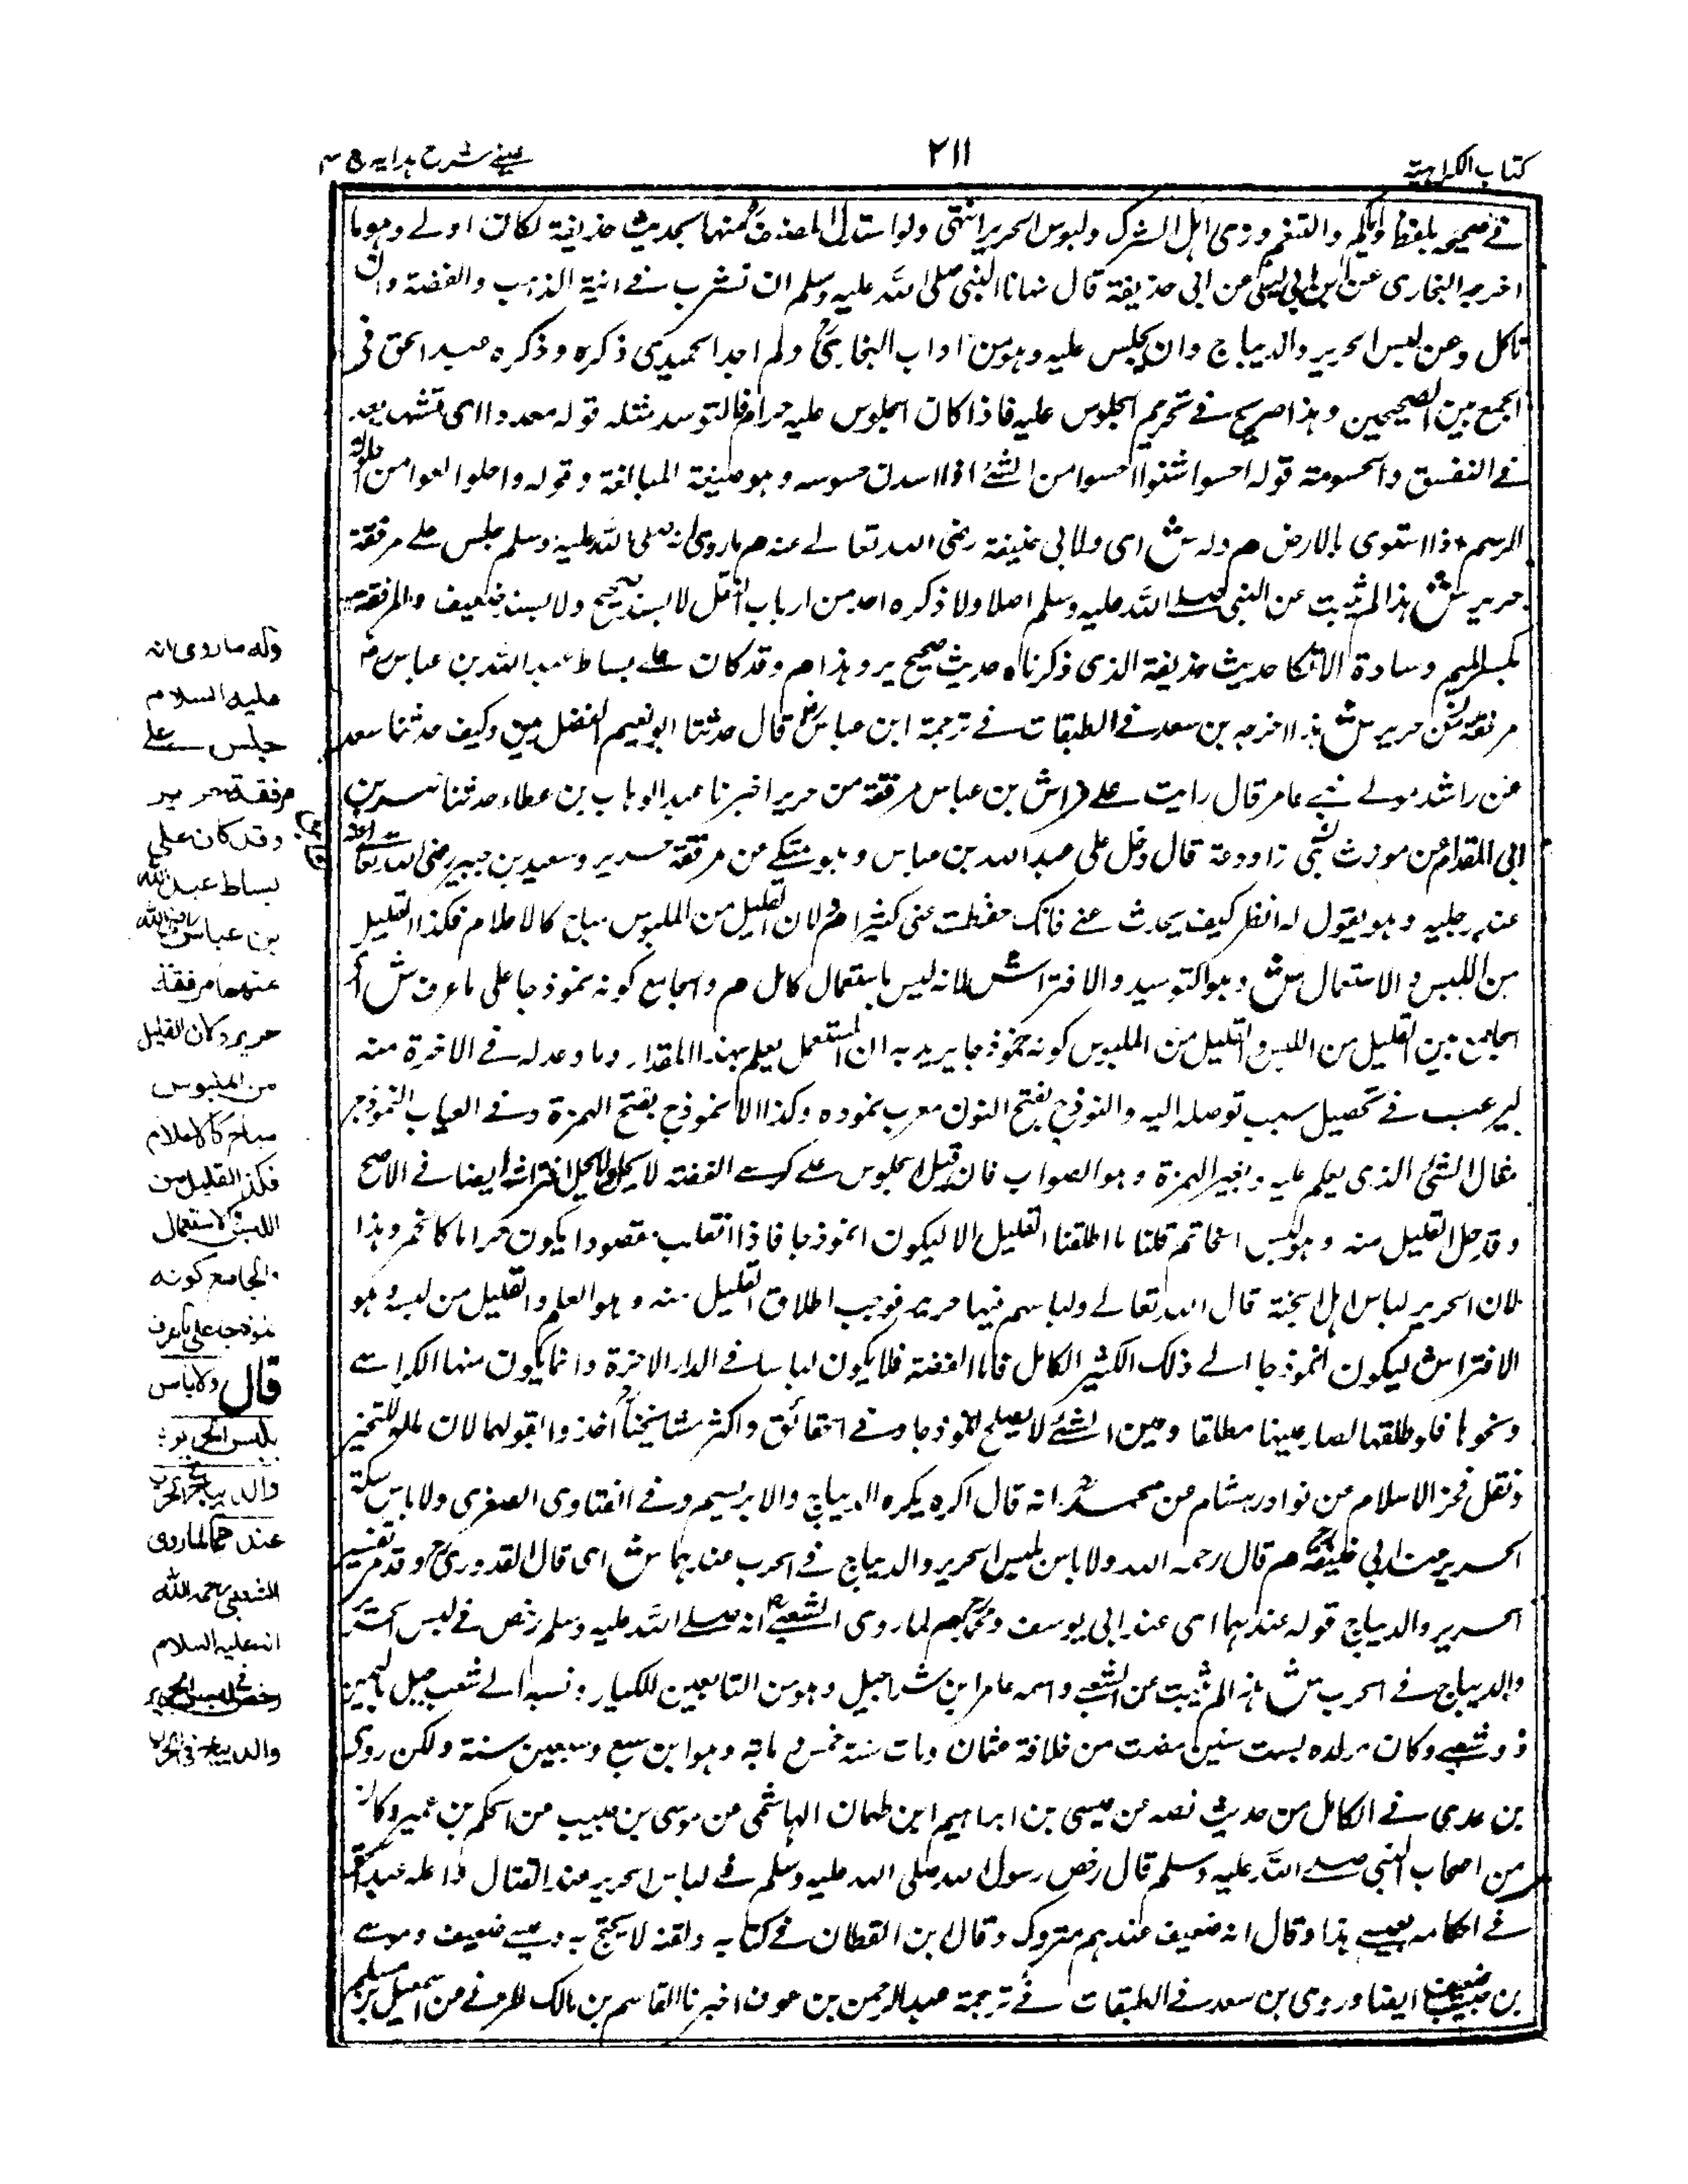 كتاب الكراهية
٢١١
عينے شرح ہدايہ ج ٤
فے صحيحہ بلفظ واياكم والتنعم وزى اہل الشرك ولبوس الحرير انتہى ولو استدل المصنف منہا بحديث حذيفة لكان اولے وہو ما
اخرجہ البخارى عن ابن ابى ليلى عن ابى حذيفة قال نہانا النبى صلى الله عليہ وسلم ان نشرب فے انية الذہب والفضة وان
ناكل وعن لبس الحرير والديباج وان نجلس عليہ وہو من اداب البخارى ولم اجد الحميدى ذكره وذكره عبد الحق فى
الجمع بين الصحيحين وہذا صريح فے تحريم الجلوس عليہ فاذا كان الجلوس عليہ حرام فالتوسد مثلہ قولہ معدوا اى تشبہ بمعد
فے التقشف والخشونة قولہ
الرسم اذا استوى بالارض م ولہ ش اى ولابى حنيفة رضى الله تعالے عنہ م ماروى انہ صلى الله عليہ وسلم جلس على مرفقة
حرير ش ہذا لم يثبت عن النبى صلے الله عليہ وسلم اصلا ولا ذكره احد من ارباب النقل لا بسند صحيح ولا بسند ضعيف والمرفقة
بكسر الميم وسادة الاتكا حديث حذيفة الذى ذكرناه حديث صحيح يرد ہذا م وقد كان على بساط عبد الله بن عباس رض
مرفقة من حرير ش ہذا اخرجہ بن سعد فے الطبقات فے ترجمة ابن عباس رض قال حدثنا ابو نعيم الفضل بن دكين حدثنا سعد
عن راشد مولے بنے عامر قال رايت على فراش بن عباس مرفقة من حرير اخبرنا عبد الوہاب بن عطاء حدثنا عمرو بن
ابى المقدام عن موذن بنى وادعة قال دخل على عبد الله بن عباس وہو متكے من مرفقة حرير وسعيد بن جبير رضى الله تعالى
عند رجليہ وہو يقول لہ انظر كيف يحدث عنے فانك حفظت عنى كثيرا م ولان القليل من الملبوس مباح كالاعلام فكذا القليل
من اللبس والاستعمال ش وہو التوسيد والافتراش لانہ ليس باستعمال كامل م والجامع كونہ نموذجا على ما عرف ش اى
الجامع بين القليل من اللبس والقليل من الملبوس كونہ نموذجا يريد بہ ان المستعمل يعلم بہذا المقدار وما وعد لہ فے الاخرة منہ
ليرغب فے تحصيل سبب توصلہ اليہ والنوذج بفتح النون معرب نموده وكذا الانموذج بفتح الہمزة وفے العباب النموذج
مثال الشئ الذى يعلم عليہ وبغير الہمزة وہو الصواب فان قيل الجلوس على كرسے الفضة لا يحل افتراشہ ايضا فے الاصح
وقد حل القليل منہ وہو لبس الخاتم قلنا ما اطلقنا القليل الا ليكون انموذجا فاذا انقلب مقصودا يكون حراما كالخمر وہذا
لان الحرير لباس اہل الجنة قال الله تعالے ولباسہم فيہا حرير فوجب اطلاق القليل منہ وہو العلم والقليل من لبسہ وہو
الافتراش ليكون انموذجا الے ذلك الكثير الكامل فاما الفضة فلا يكون لباسا فے الدار الاخرة وانما يكون منہا الكراسے
ونحوہا فلو طلقہا لصار عينہا مطلقا وعين الشئے لا يصلح انموذجا وفے الحقائق واكثر مشايخنا اخذوا بقولہما
ونقل فخر الاسلام من نوادر ہشام عن محمد انہ قال اكره يكره الديباج والابريسم وفے الفتاوى الصغرى ولا باس
الحرير عند ابى حنيفة م قال رحمہ الله ولا باس بلبس الحرير والديباج فے الحرب عندہما ش اى قال القدورى وقد مر تفسير
الحرير والديباج قولہ عندہما اى عند ابى يوسف ومحمد م لما روى الشعبے انہ صلے الله عليہ وسلم رخص فے لبس الحرير
والديباج فے الحرب ش ہذا لم يثبت عن الشعبے واسمہ عامر ابن شراحيل وہو من التابعين الكبار ونسبہ الے شعب جبل باليمن
ذو شعبے وكان مولده لست سنين مضت من خلافة عثمان ومات سنة خمس ومائة وہو ابن سبع وسبعين سنة ولكن روى
بن عدى فے الكامل من حديث نصہ عن عيسى بن ابراہيم ابن طہمان الہاشمى عن موسى بن حبيب عن الحكم بن عمير وكان
من اصحاب النبى صلے الله عليہ وسلم قال رخص رسول الله صلى الله عليہ وسلم فے لباس الحرير عند القتال واعلہ عبد الحق
فے احكامہ بعيسے ہذا وقال انہ ضعيف عندہم متروك وقال ابن القطان فے كتابہ وبقية لا يحتج بہ وعيسے ضعيف وموسے
بن حبيب ضعيف ايضا وروى بن سعد فے الطبقات فے ترجمة عبد الرحمن بن عوف اخبرنا القاسم بن مالك المزنے عن اسمعيل بن مسلم
ولہ ما روى انہ
عليہ السلام
جلس على
مرفقة حرير
وقد كان على
بساط عبد الله
بن عباس رضى الله
عنہما مرفقة
حرير ولان القليل
من الملبوس
مباح كالاعلام
فكذا القليل من
اللبس والاستعمال
والجامع كونہ
نموذجا على ما عرف
قال ولا باس
بلبس الحرير
والديباج فے الحرب
عندهما لما روى
الشعبى رحمہ الله
انہ عليہ السلام
رخص فى لبس الحرير
والديباج فى الحرب